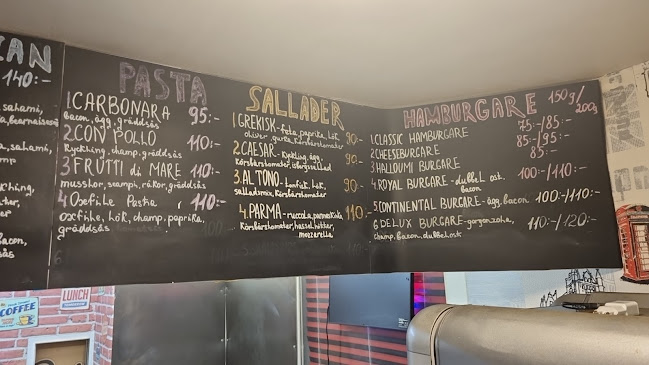 140:-
PASTA
1 CARBONARA 95:-
bacon, ägg, gräddsås
2 CON POLLO 110:-
Kyckling, champ, gräddsås
3 FRUTTI di MARE 110:-
musslor, scampi, räkor, gräddsås
4 Oxfilé Pasta 110:-
oxfilé, lök, champ, paprika,
gräddsås
SALLADER
1 GREKISK - feta, paprika, lök
oliver, gurka, Körsbärstomater 90:-
2 CAESAR - Kyckling, ägg,
Körsbärstomater, isbergssallad 90:-
3 AL TONO - Tonfisk, lök,
salladsmix, Körsbärstomater 90:-
4. PARMA - ruccola, parmaskinka 110:-
Körsbärstomater, hasselnötter,
mozzarella
HAMBURGARE 150g/200g
1. CLASSIC HAMBURGARE 75:-/85:-
2 CHEESEBURGARE 85:-/95:-
3. HALLOUMI BURGARE 85:-
4. ROYAL BURGARE - dubbel ost, 100:-/110:-
bacon
5 CONTINENTAL BURGARE - ägg, bacon 100:-/110:-
6 DELUX BURGARE - gorgonzola, 110:-/120:-
champ, bacon, dubbelost
COFFEE
LUNCH